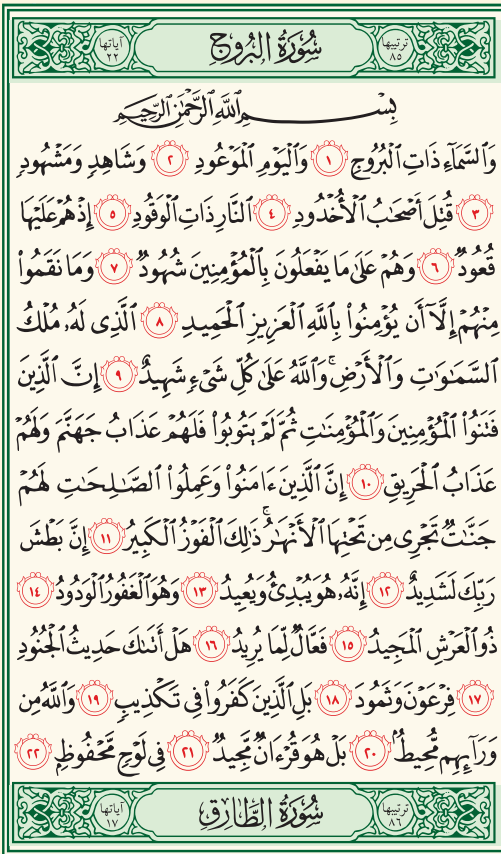 ترتيبها ٨٥ سُورَةُ البُرُوجِ آياتها ٢٢
بِسْمِ اللَّهِ الرَّحْمَٰنِ الرَّحِيمِ
وَالسَّمَآءِ ذَاتِ الْبُرُوجِ ١ وَالْيَوْمِ الْمَوْعُودِ ٢ وَشَاهِدٍ وَمَشْهُودٍ
٣ قُتِلَ أَصْحَٰبُ الْأُخْدُودِ ٤ النَّارِ ذَاتِ الْوَقُودِ ٥ إِذْ هُمْ عَلَيْهَا
قُعُودٌ ٦ وَهُمْ عَلَىٰ مَا يَفْعَلُونَ بِالْمُؤْمِنِينَ شُهُودٌ ٧ وَمَا نَقَمُوا۟
مِنْهُمْ إِلَّآ أَن يُؤْمِنُوا۟ بِاللَّهِ الْعَزِيزِ الْحَمِيدِ ٨ الَّذِى لَهُۥ مُلْكُ
السَّمَٰوَٰتِ وَالْأَرْضِ ۚ وَاللَّهُ عَلَىٰ كُلِّ شَىْءٍ شَهِيدٌ ٩ إِنَّ الَّذِينَ
فَتَنُوا۟ الْمُؤْمِنِينَ وَالْمُؤْمِنَٰتِ ثُمَّ لَمْ يَتُوبُوا۟ فَلَهُمْ عَذَابُ جَهَنَّمَ وَلَهُمْ
عَذَابُ الْحَرِيقِ ١٠ إِنَّ الَّذِينَ ءَامَنُوا۟ وَعَمِلُوا۟ الصَّٰلِحَٰتِ لَهُمْ
جَنَّٰتٌ تَجْرِى مِن تَحْتِهَا الْأَنْهَٰرُ ۚ ذَٰلِكَ الْفَوْزُ الْكَبِيرُ ١١ إِنَّ بَطْشَ
رَبِّكَ لَشَدِيدٌ ١٢ إِنَّهُۥ هُوَ يُبْدِئُ وَيُعِيدُ ١٣ وَهُوَ الْغَفُورُ الْوَدُودُ ١٤
ذُو الْعَرْشِ الْمَجِيدُ ١٥ فَعَّالٌ لِّمَا يُرِيدُ ١٦ هَلْ أَتَىٰكَ حَدِيثُ الْجُنُودِ
١٧ فِرْعَوْنَ وَثَمُودَ ١٨ بَلِ الَّذِينَ كَفَرُوا۟ فِى تَكْذِيبٍ ١٩ وَاللَّهُ مِن
وَرَآئِهِم مُّحِيطٌ ٢٠ بَلْ هُوَ قُرْءَانٌ مَّجِيدٌ ٢١ فِى لَوْحٍ مَّحْفُوظٍ ٢٢
ترتيبها ٨٦ سُورَةُ الطَّارِقِ آياتها ١٧